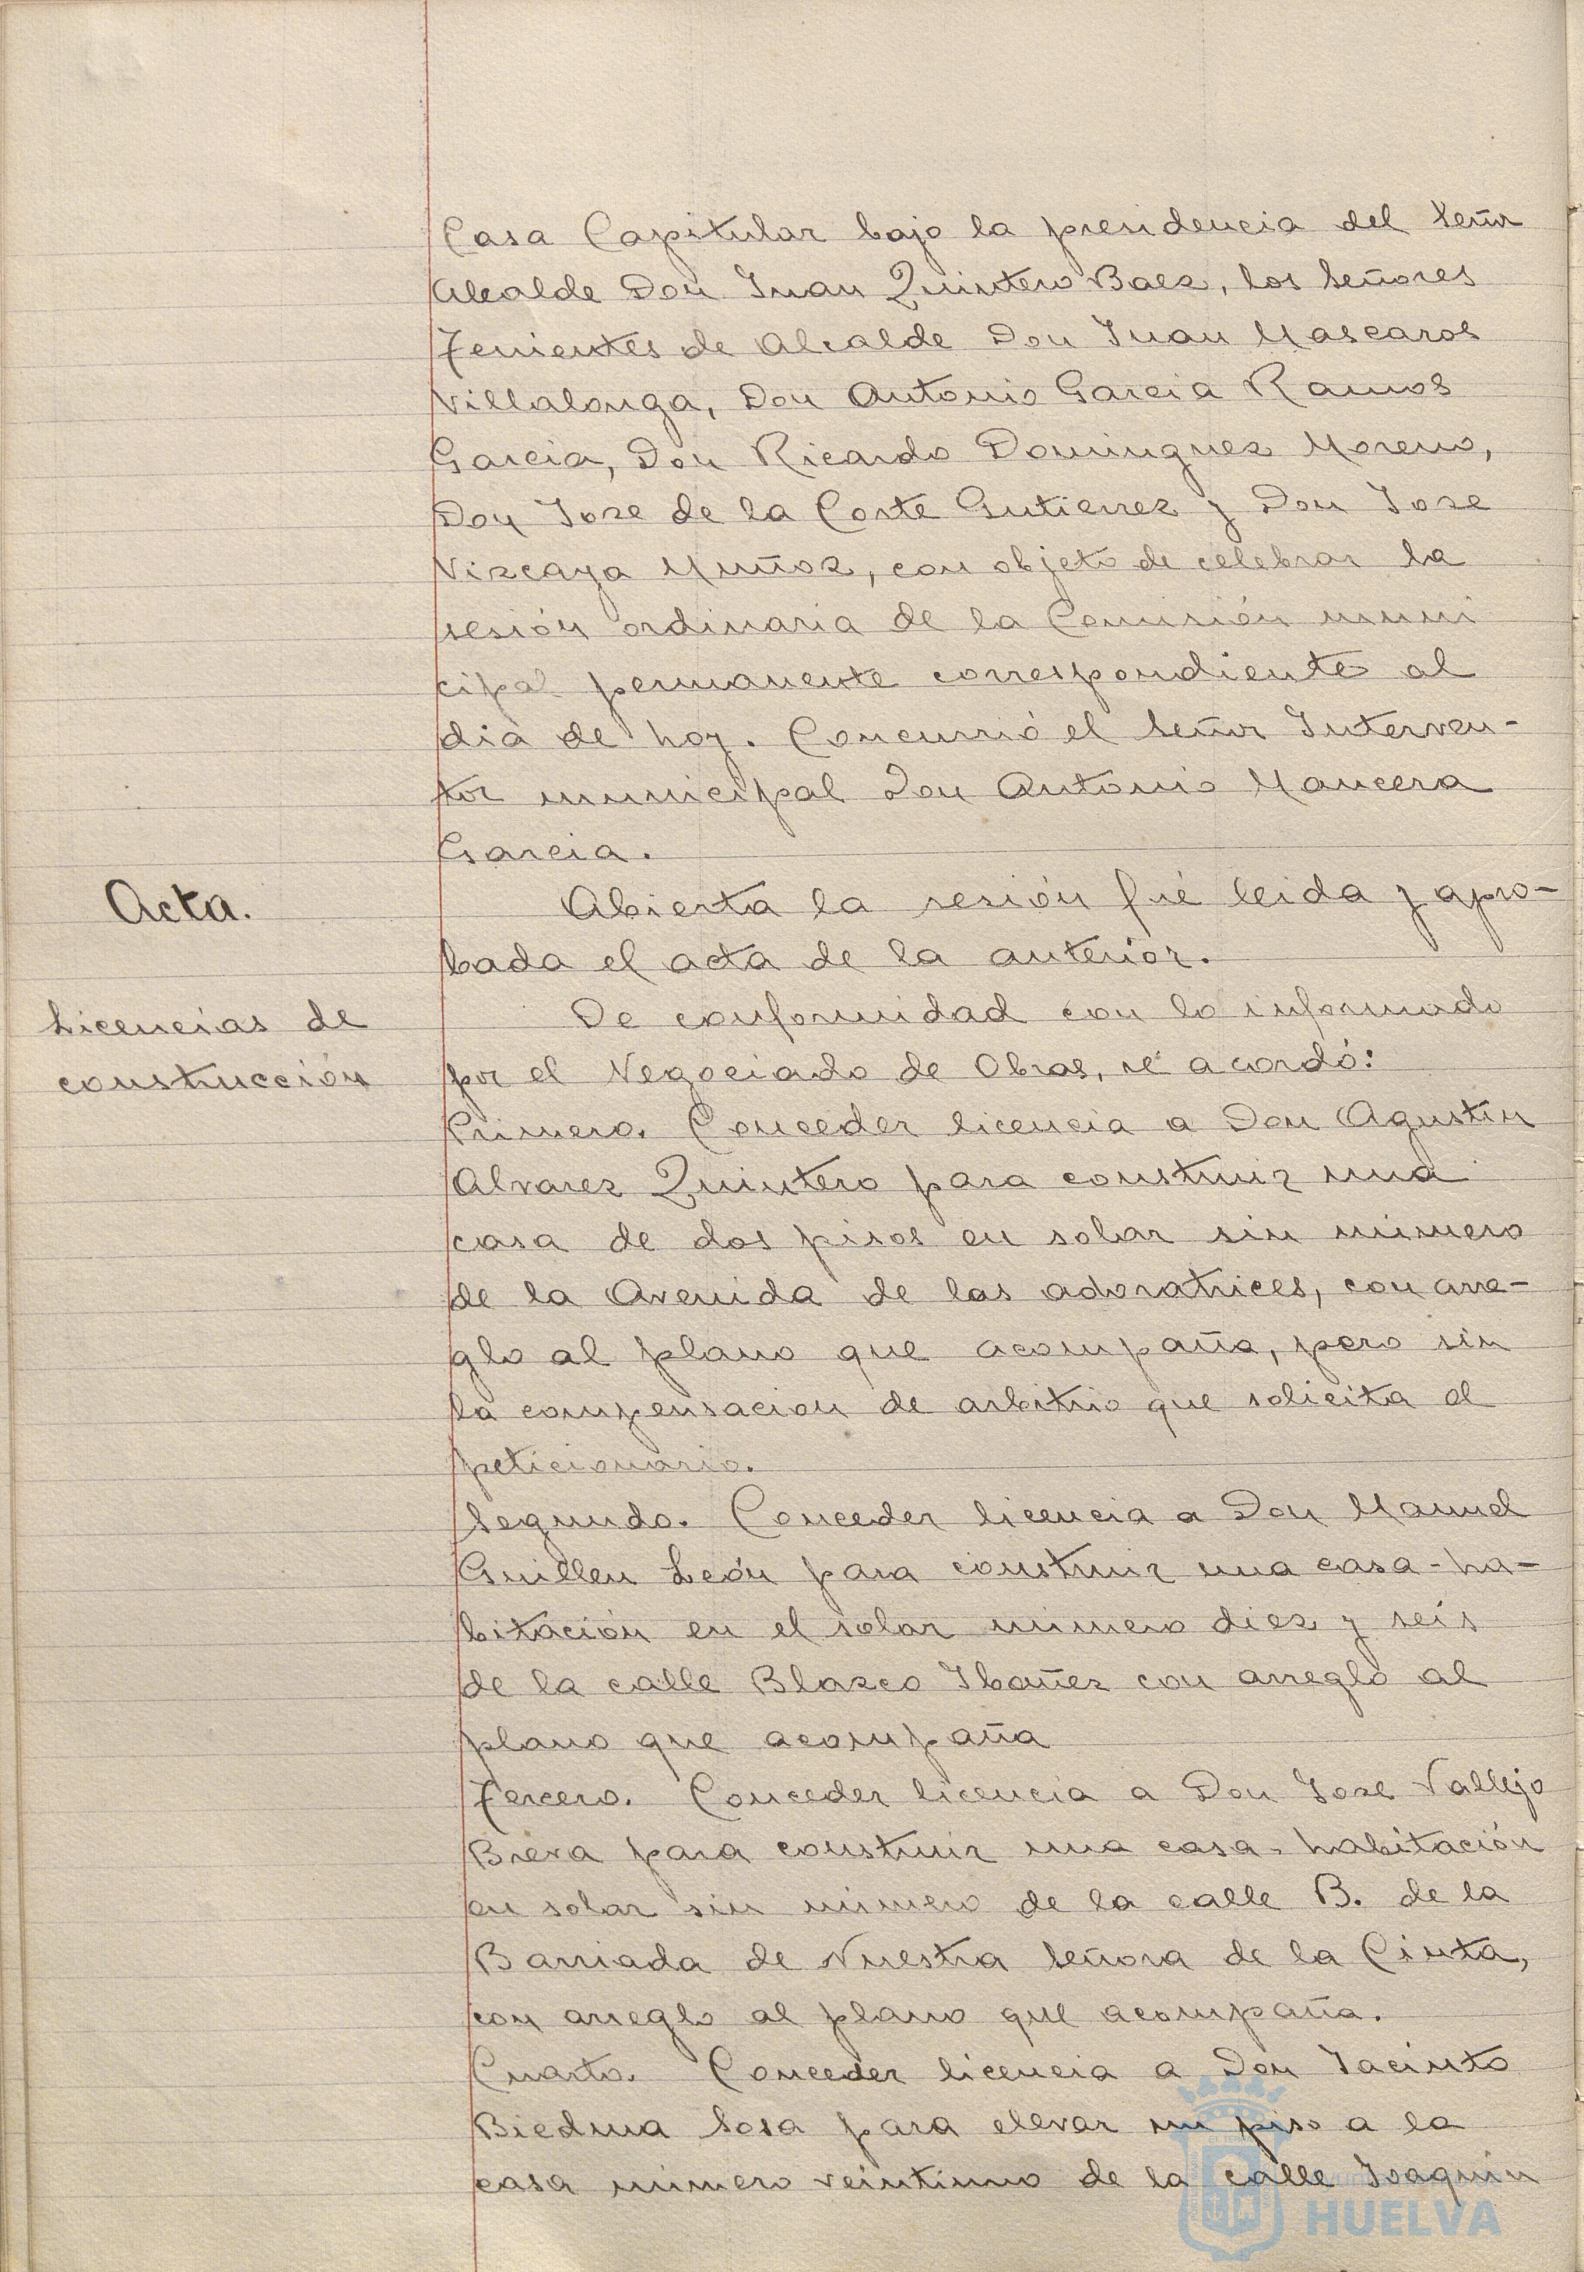 Casa Capitular bajo la presidencia del Señor
Alcalde Don Juan Quintero Baez, los Señores
Tenientes de Alcalde Don Juan Mascaros
Villalonga, Don Antonio Garcia Ramos
Garcia, Don Ricardo Dominguez Moreno,
Don Jose de la Corte Gutierrez y Don Jose
Vizcaya Muñoz, con objeto de celebrar la
sesión ordinaria de la Comisión muni
cipal permanente correspondiente al
dia de hoy. Concurrió el Señor Interven-
tor municipal Don Antonio Mancera
Garcia.
Acta.
Abierta la sesión fué leida y apro-
bada el acta de la anterior.
Licencias de
construcción
De conformidad con lo informado
por el Negociado de Obras, se acordó:
Primero. Conceder licencia a Don Agustin
Alvarez Quintero para construir una
casa de dos pisos en solar sin número
de la Avenida de las adoratrices, con arre-
glo al plano que acompaña, pero sin
la compensacion de arbitrio que solicita el
peticionario.
Segundo. Conceder licencia a Don Manuel
Guillen León para construir una casa-ha-
bitación en el solar número diez y seis
de la calle Blasco Ibañez con arreglo al
plano que acompaña
Tercero. Conceder licencia a Don Jose Vallejo
Breva para construir una casa-habitación
en solar sin número de la calle B. de la
Barriada de Nuestra Señora de la Cinta,
con arreglo al plano que acompaña.
Cuarto. Conceder licencia a Don Jacinto
Biedma Sosa para elevar un piso a la
casa número veintiuno de la calle Joaquin
HUELVA